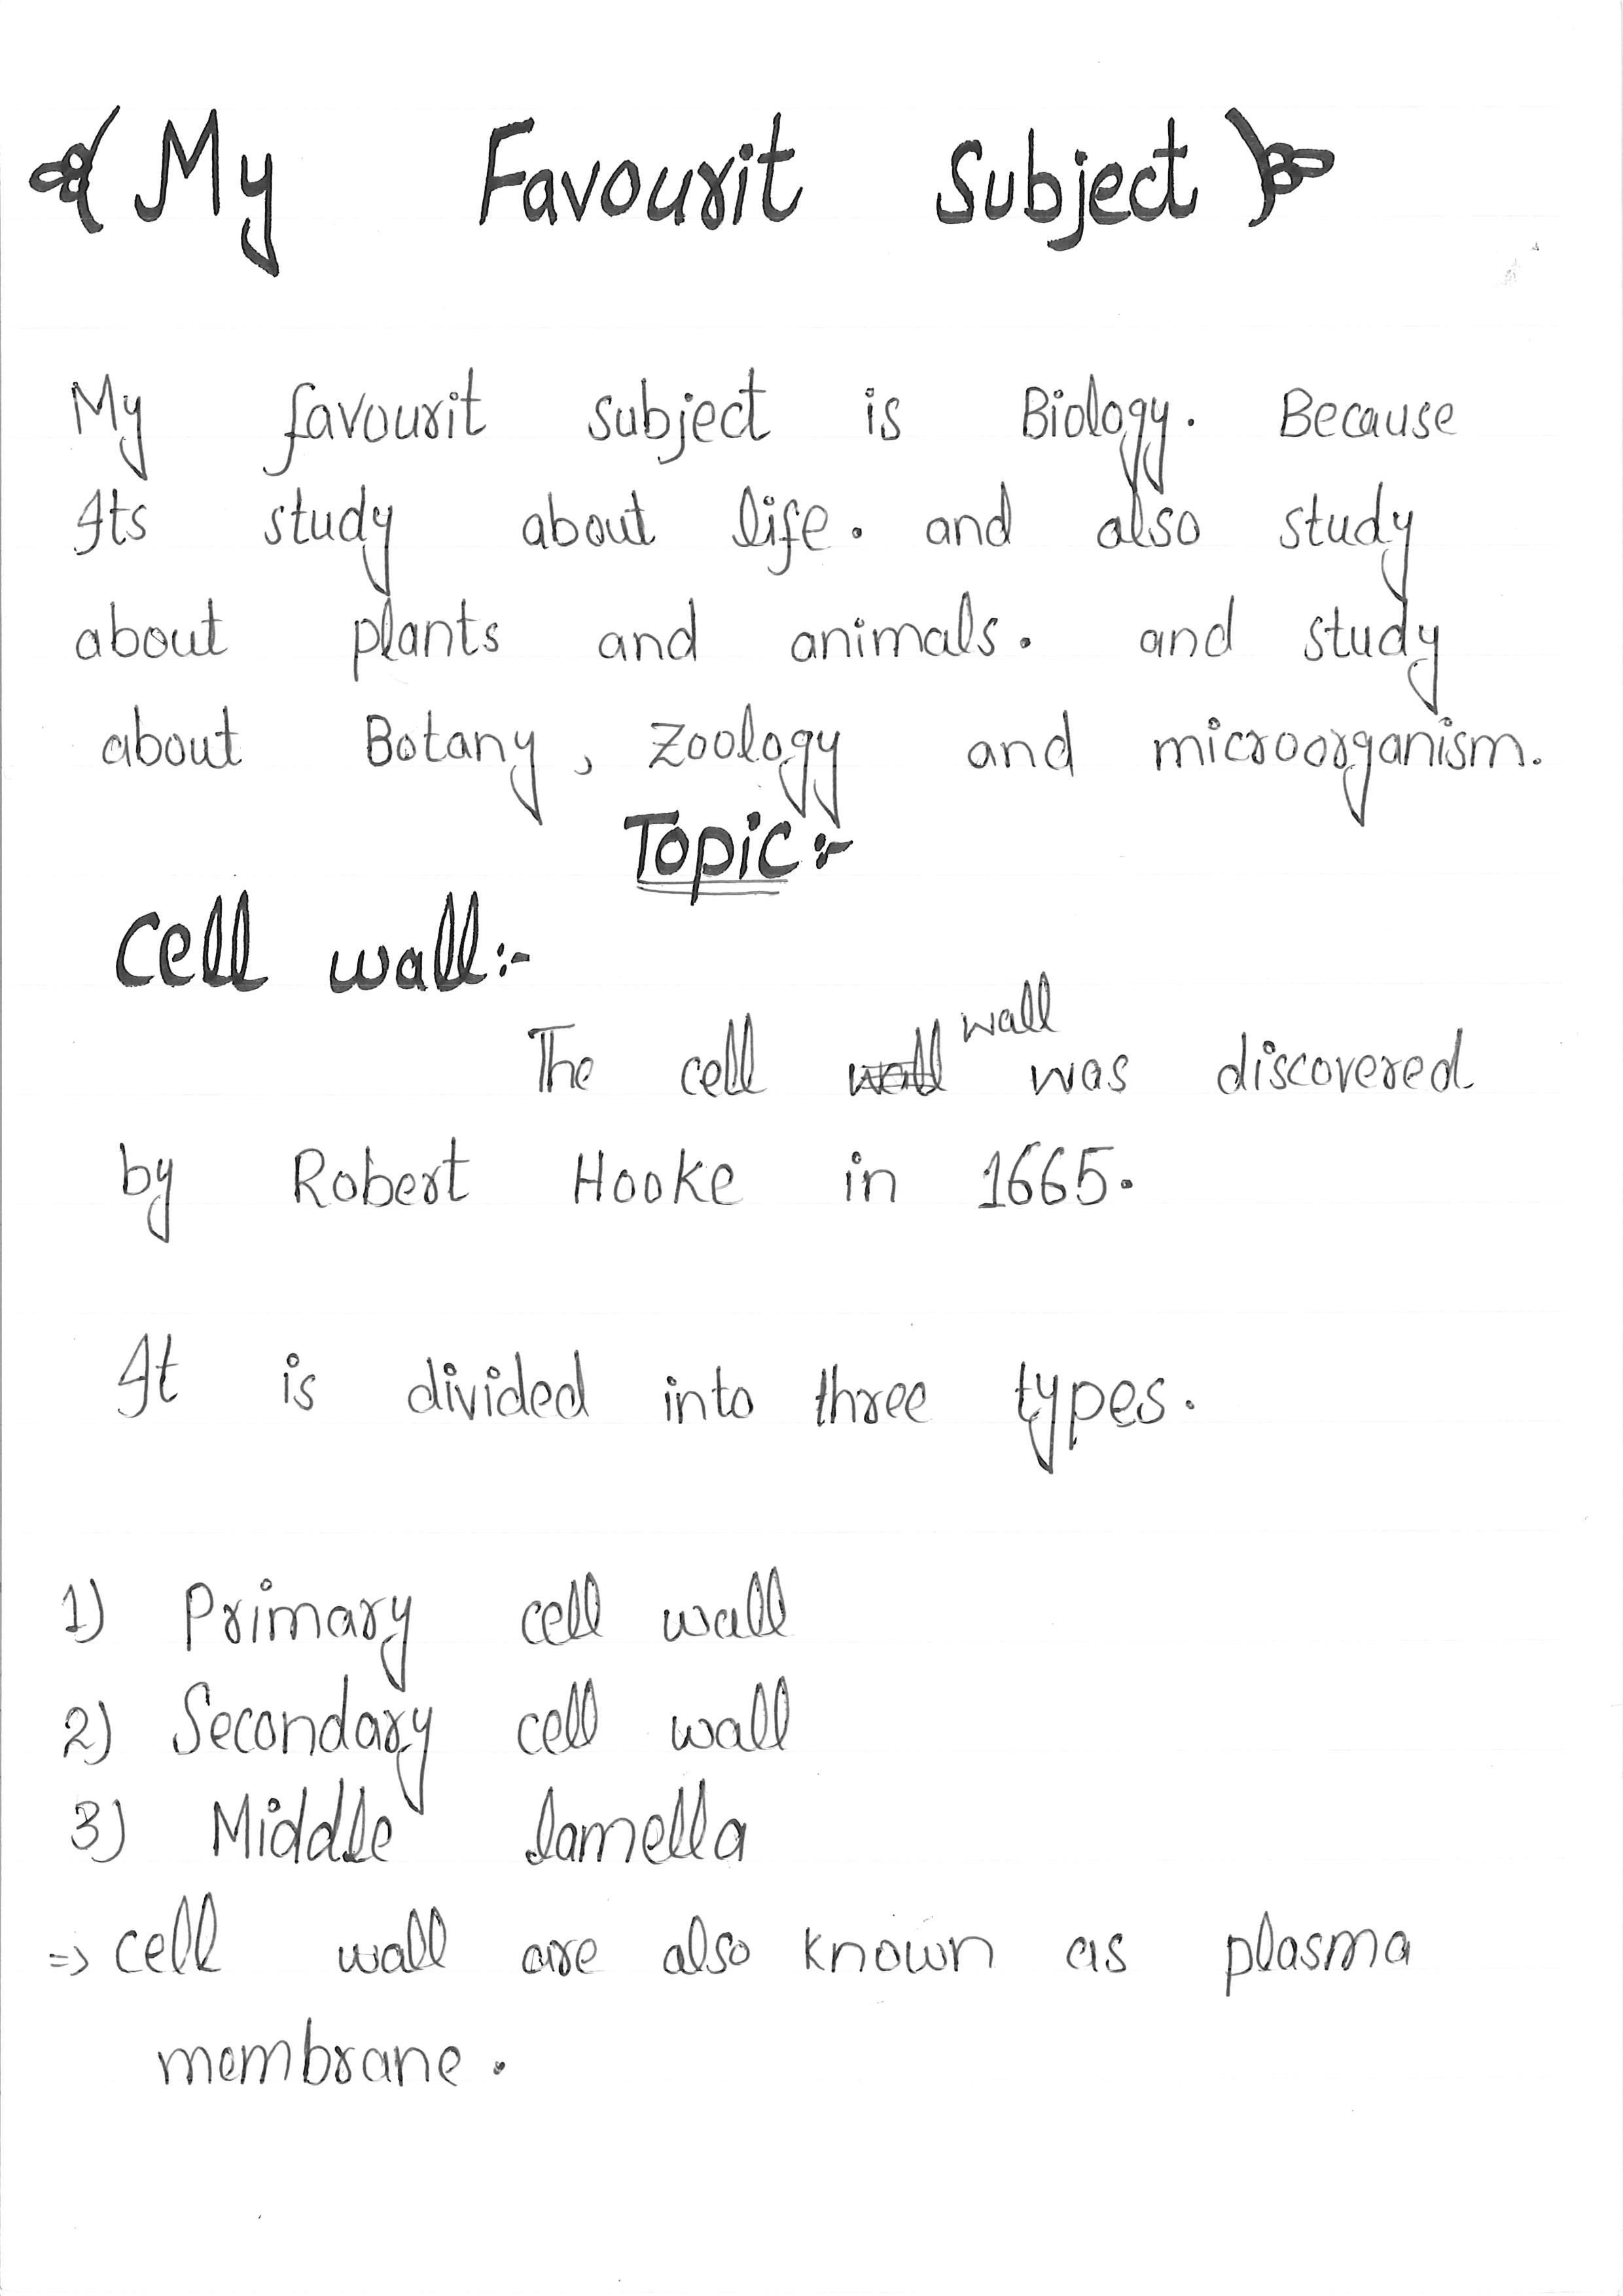 My Favourit Subject
My favourit subject is Biology. Because
Its study about life. and also study
about plants and animals. and study
about Botany, Zoology and microorganism.
Topic:-
Cell wall:-
The cell wall wall was discovered
by Robert Hooke in 1665.
It is divided into three types.
1) Primary cell wall
2) Secondary cell wall
3) Middle lamella
=> cell wall are also known as plasma
membrane.